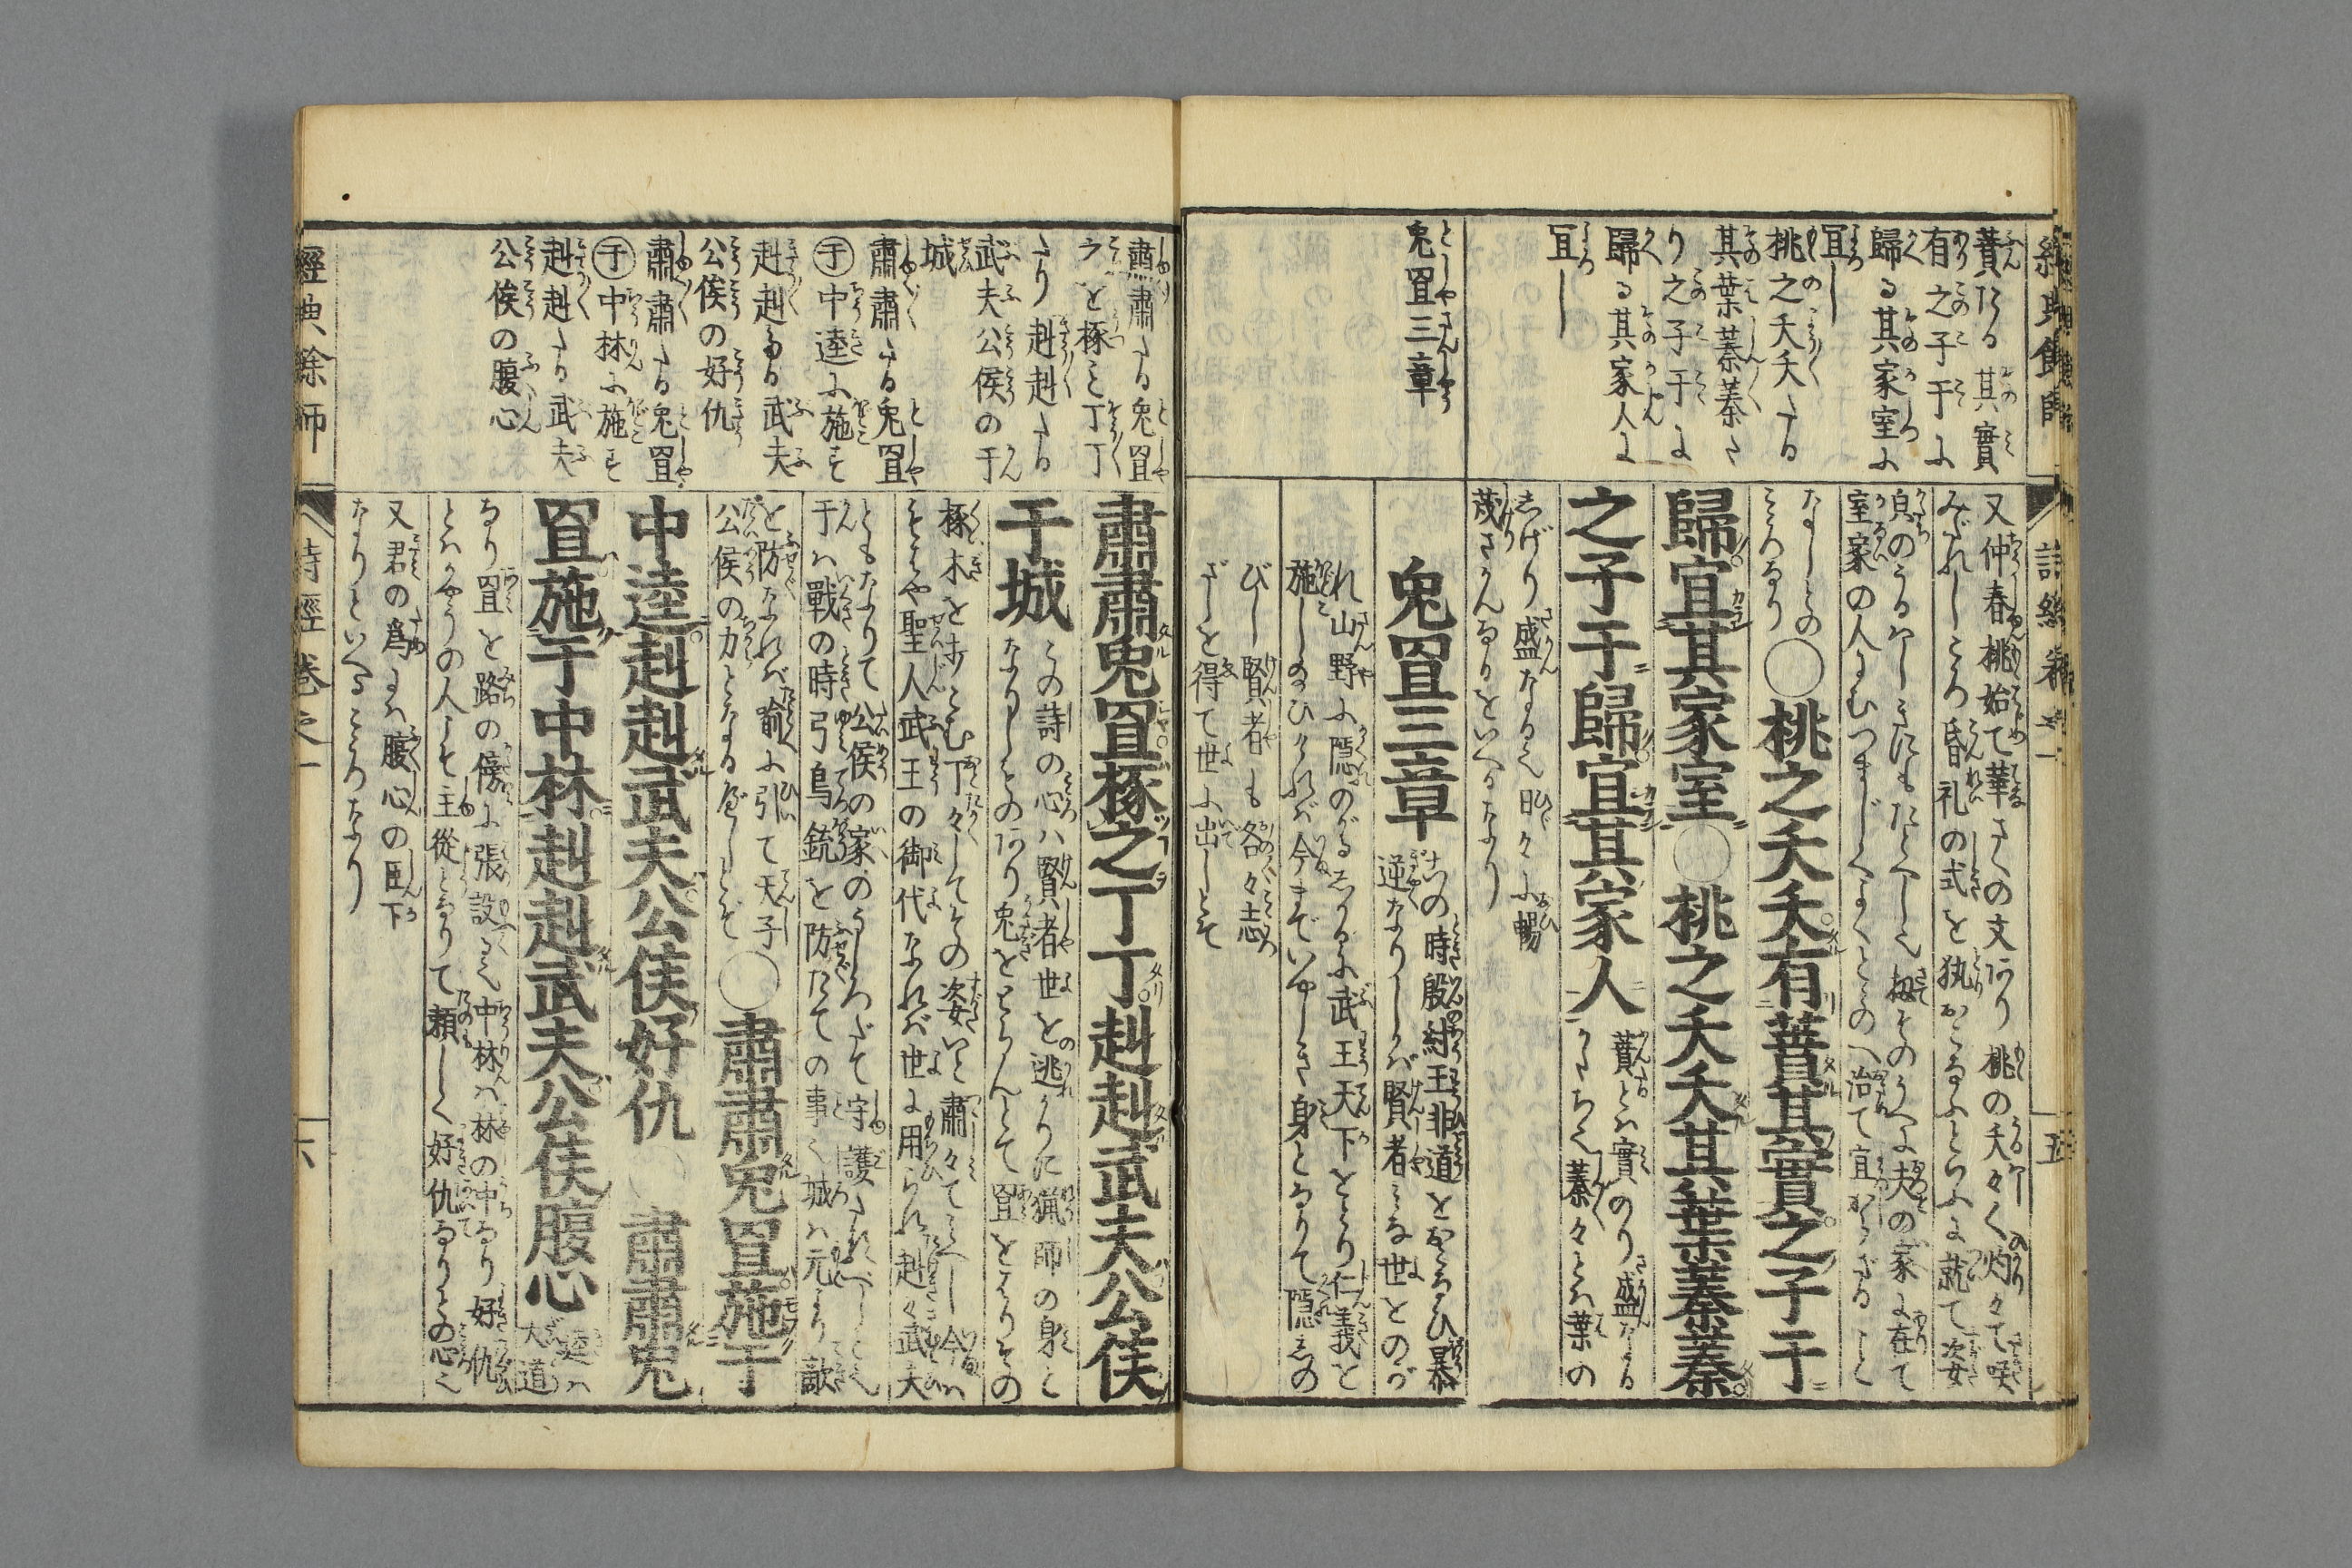 蕡たる其實
有之子于に
歸る其家室に
宜し
桃之夭夭たる
其葉蓁蓁た
り之子于に
歸る其家人に
宜し
兎罝三章
又仲春桃始て華さくの文あり桃の夭々く灼々て咲
みだれしころ昏礼の式を执おこなふとらふに就て姿
室家の人にむつまじくよくとゝのへ治て宜からざること
なしとの
こゝろなり
○桃之夭夭有蕡其實之子于
歸宜其家室○桃之夭夭其葉蓁蓁
之子于歸宜其家人
蕡とは實のり盛なる
かたち也蓁々とは葉の
しげり盛なる也日々に暢
茂さかんなるをいへるなり
兎罝三章
この時殷の紂王非道をおこなひ暴
逆なりしかば賢者みな世とのが
れ山野に隱のがるなりに武王天下をとり仁義と
施しのひければ今までいやしき身となりて隱しの
びし賢者も各々志
ざしを得て世に出しとそ
肅肅たる兎罝
之を椓こと丁丁
たり赳赳たる
武夫公侯の干
城
肅肅たる兎罝
于中逵に施す
赳赳たる武夫
公侯の好仇
肅肅たる兎罝
于中林に施す
赳赳たる武夫
公侯の腹心
肅肅兎罝椓之丁丁赳赳武夫公侯
干城
この詩の心は賢者世を逃かりに猟師の身と
なりしとのあり兎をとらんとて罝をはりその
椓木を打こむ丁々してその姿いと肅々てみへし今は
そもや聖人武王の御代なれば世に用られ赳々武夫
ともなりて公侯の家のうしろだて守護
干は戰の時弓鳥銃を防たての事く城は元より敵
を防なれば喩に引て天子
公侯の力となるべしとぞ
○肅肅兎罝施于
中逵赳赳武夫公侯好仇○肅肅兎
罝施于中林赳赳武夫公侯腹心
逵は
大道
なり罝を路の傍に張設る也中林は林の中なり好仇
とはかやうの人して主從となりて頼しく好仇なりとの心也
又君の爲には腹心の臣下
なりといへるこゝろなり
經典餘師
詩經卷之一
六
五